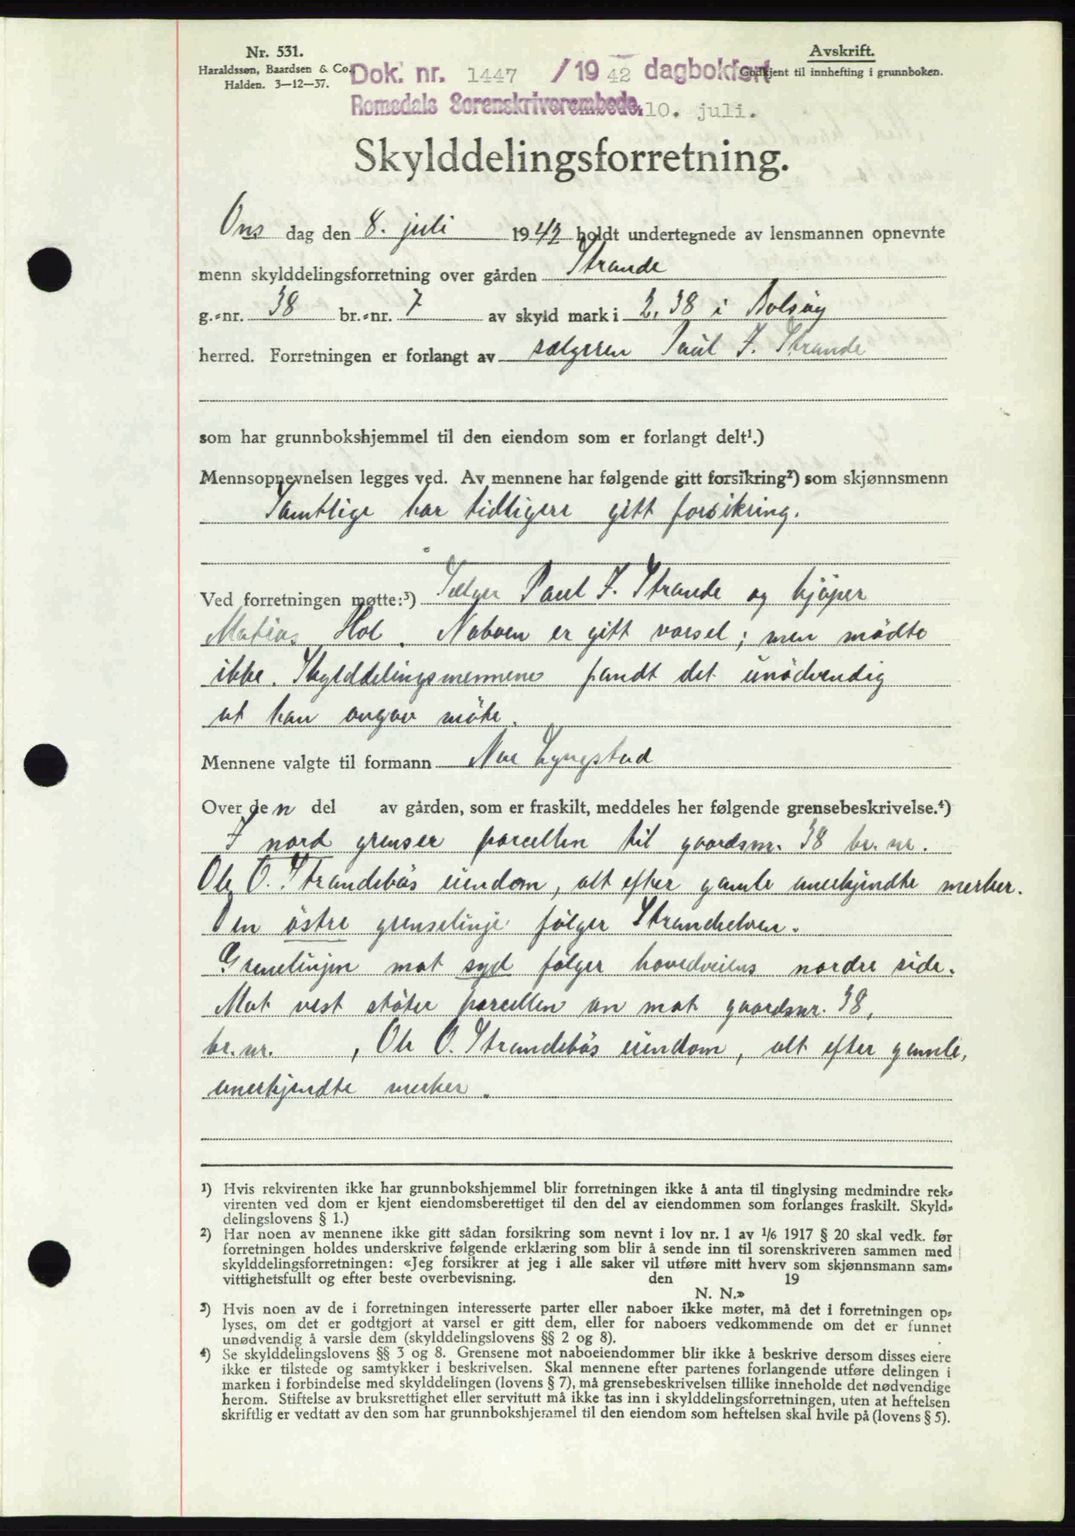 Nr. 531.
Haraldssøn, Baardsen & Co.
Halden. 3—12—37.
Avskrift.
Godkjent til innhefting i grunnboken.
Dok. nr. 1447 /19 42 dagbokført
Romsdals Sorenskriverembede, 10. juli.
Skylddelingsforretning.
Ons dag den 8. juli 1942 holdt undertegnede av lensmannen opnevnte
menn skylddelingsforretning over gården Strande
g.-nr. 38 br.-nr. 7 av skyld mark i 2,38 i Bolsøy
herred. Forretningen er forlangt av sælgeren Paul J. Strande
som har grunnbokshjemmel til den eiendom som er forlangt delt¹.)
Mennsopnevnelsen legges ved. Av mennene har følgende gitt forsikring²) som skjønnsmenn
Samtlige har tidligere gitt forsikring.
Ved forretningen møtte:³) Sælger Paul J. Strande og kjöper
Matias Hol. Naboen er gitt varsel; men mödte
ikke. Skylddelingsmennene fandt det unödvendig
at han avgav möte.
Mennene valgte til formann Nar Lyngstad
Over den del av gården, som er fraskilt, meddeles her følgende grensebeskrivelse.⁴)
I nord grenser parcellen til gaardsnr. 38 br. nr.
Ole O. Strandebös eiendom, alt efter gamle anerkjendte merker.
Den östre grenselinje fölger Strandelven.
Grenselinjen mot syd fölger hovedveiens nordre side.
Mot vest stöter parcellen an mot gaardsnr. 38,
br. nr. , Ole O. Strandebös eiendom, alt efter gamle,
anerkjendte merker.
¹) Hvis rekvirenten ikke har grunnbokshjemmel blir forretningen ikke å anta til tinglysing medmindre rek-
virenten ved dom er kjent eiendomsberettiget til den del av eiendommen som forlanges fraskilt. Skyld-
delingslovens § 1.)
²) Har noen av mennene ikke gitt sådan forsikring som nevnt i lov nr. 1 av 1/6 1917 § 20 skal vedk. før
forretningen holdes underskrive følgende erklæring som blir å sende inn til sorenskriveren sammen med
skylddelingsforretningen: «Jeg forsikrer at jeg i alle saker vil utføre mitt hverv som skjønnsmann sam-
vittighetsfullt og efter beste overbevisning. den 19
N. N.»
³) Hvis noen av de i forretningen interesserte parter eller naboer ikke møter, må det i forretningen op-
lyses, om det er godtgjort at varsel er gitt dem, eller for naboers vedkommende om det er funnet
unødvendig å varsle dem (skylddelingslovens §§ 2 og 8).
⁴) Se skylddelingslovens §§ 3 og 8. Grensene mot naboeiendommer blir ikke å beskrive dersom disses eiere
ikke er tilstede og samtykker i beskrivelsen. Skal mennene efter partenes forlangende utføre delingen i
marken i forbindelse med skylddelingen (lovens § 7), må grensebeskrivelsen tillike inneholde det nødvendige
herom. Stiftelse av bruksrettighet eller servitutt må ikke tas inn i skylddelingsforretningen, uten at heftelsen
skriftlig er vedtatt av den som har grunnbokshjemmel til den eiendom som heftelsen skal hvile på (lovens § 5).